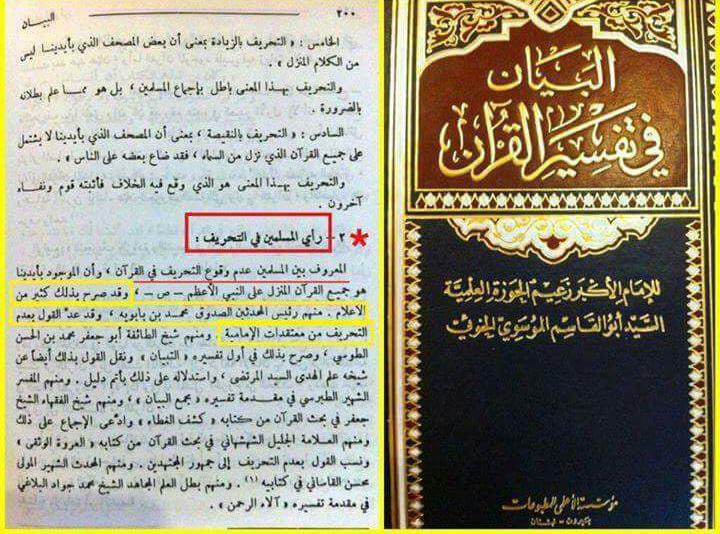 ٢٠٠
البيان
الخامس : « التحريف بالزيادة بمعنى أن بعض المصحف الذي بأيدينا ليس
من الكلام المنزل » .
والتحريف بهذا المعنى باطل بإجماع المسلمين ، بل هو مما علم بطلانه
بالضرورة .
السادس : « التحريف بالنقيصة ، بمعنى أن المصحف الذي بأيدينا لا يشتمل
على جميع القرآن الذي نزل من السماء ، فقد ضاع بعضه على الناس » .
والتحريف بهذا المعنى هو الذي وقع فيه الخلاف فأثبته قوم ونفاه
آخرون .
٢ - رأي المسلمين في التحريف :
المعروف بين المسلمين عدم وقوع التحريف في القرآن ، وأن الموجود بأيدينا
هو جميع القرآن المنزل على النبي الأعظم - ص - ، وقد صرح بذلك كثير من
الاعلام . منهم رئيس المحدثين الصدوق محمد بن بابويه ، وقد عدّ القول بعدم
التحريف من معتقدات الإمامية . ومنهم شيخ الطائفة أبو جعفر محمد بن الحسن
الطوسي ، وصرح بذلك في أول تفسيره « التبيان » ونقل القول بذلك أيضاً عن
شيخه علم الهدى السيد المرتضى ، واستدلاله على ذلك بأتم دليل . ومنهم المفسر
الشهير الطبرسي في مقدمة تفسيره « مجمع البيان » ، ومنهم شيخ الفقهاء الشيخ
جعفر في بحث القرآن من كتابه « كشف الغطاء » وادّعى الإجماع على ذلك
ومنهم العلامة الجليل الشهشهاني في بحث القرآن من كتابه « العروة الوثقى »
ونسب القول بعدم التحريف إلى جمهور المجتهدين . ومنهم المحدث الشهير المولى
محسن القاساني في كتابيه (١) . ومنهم بطل العلم المجاهد الشيخ محمد جواد البلاغي
في مقدمة تفسيره « آلاء الرحمن » .
البيان
في تفسير القرآن
للإمام الأكبر زعيم الحوزة العلمية
السيد أبو القاسم الموسوي الخوئي
مؤسسة الأعلمي للمطبوعات
بيروت - لبنان